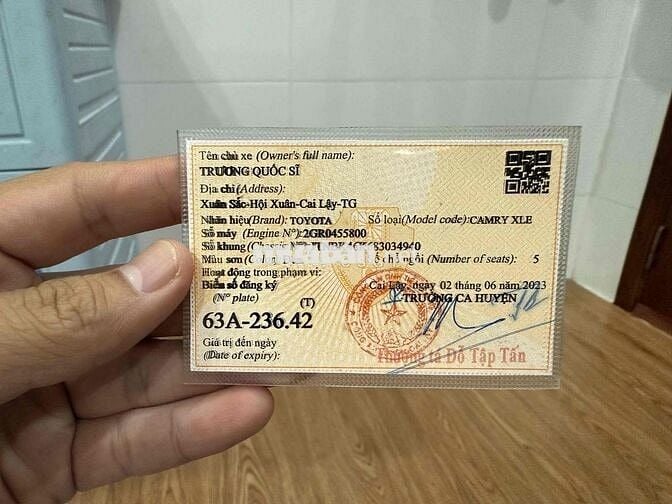 Tên chủ xe (Owner's full name):
TRƯƠNG QUỐC SĨ
Địa chỉ (Address):
Xuân Sắc-Hội Xuân-Cai Lậy-TG
Nhãn hiệu(Brand): TOYOTA Số loại(Model code):CAMRY XLE
Số máy (Engine Nº):2GR0455800
Số khung
Màu sơn chỗ ngồi (Number of seats): 5
Hoạt động trong phạm vi:
Biển số đăng ký Cai Lậy, ngày 02 tháng 06 năm 2023
(Nº plate) (T) TRƯỞNG CA HUYỆN
63A-236.42
Giá trị đến ngày
(Date of expiry): Thượng tá Đỗ Tập Tấn